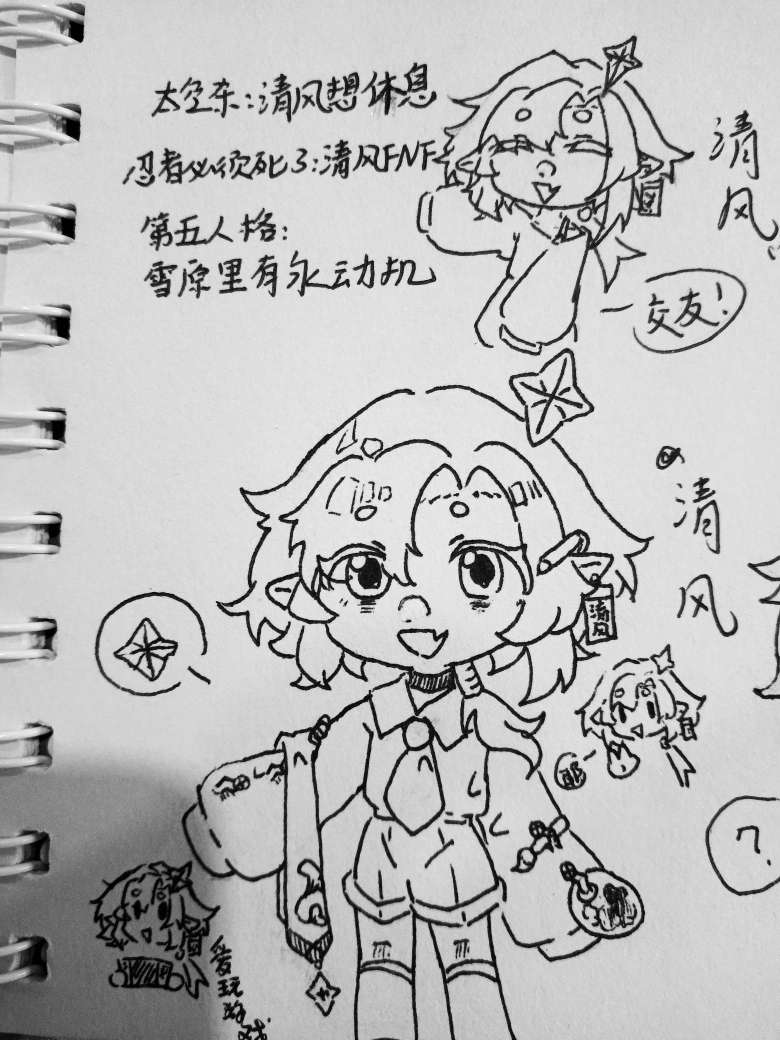 太空杀:清风想休息
忍者必须死3:清风FNF
第五人格:
雪原里有永动机
清风
交友!
清风
清风
耶
7.
爱玩游戏